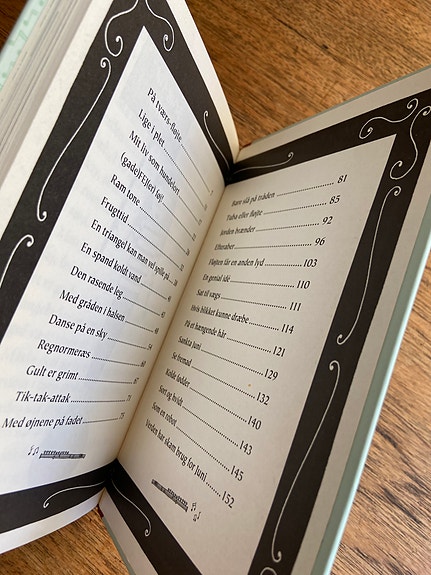 På tværs-fløjte
Lige i plet
Mit liv som hundelort
(gade)FE(jeri føj!
Ram tone
Frugttid
En triangel kan man vel spille på
En spand koldt vand
Den rasende leg
Med gråden i halsen 48
Danse på en sky 54
Regnormeræs 60
Gult er grimt 67
Tik-tak-attak 71
Med øjnene på fadet 75
Bare slå på tråden 81
Tuba eller fløjte 85
Jorden brænder 92
Efteraber 96
Fløjten får en anden lyd 103
En genial idé 110
Sat til vægs 111
Hvis blikket kunne dræbe 114
På et hængende hår 121
Sankta Juni 129
Se fremad 132
Kolde fødder 140
Sort og hvidt 143
Som en robot 145
Verden har skam brug for Juni 152